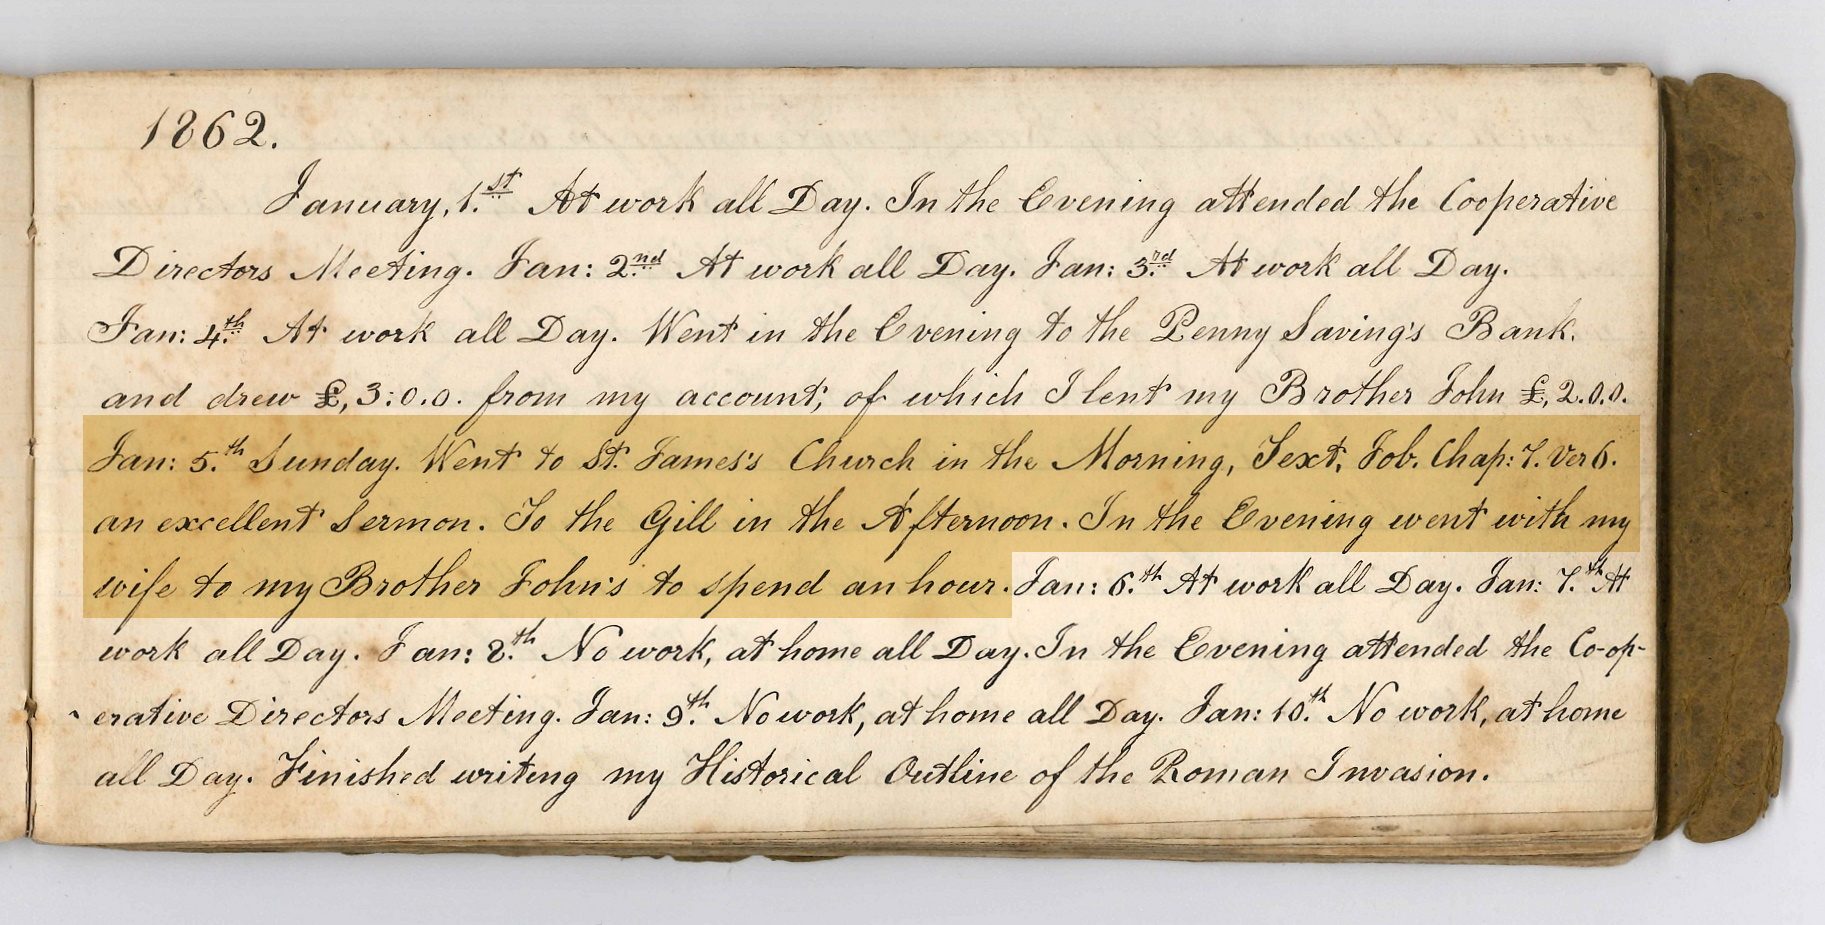 1862.
January, 1.st At work all Day. In the Evening attended the Cooperative
Directors Meeting. Jan: 2.nd At work all Day. Jan: 3.rd At work all Day.
Jan: 4.th At work all Day. Went in the Evening to the Penny Saving's Bank.
and drew £,3:0.0. from my account; of which I lent my Brother John £,2.0.0.
Jan: 5.th Sunday. Went to St. James's Church in the Morning, Text, Job. Chap: 7. Ver 6.
an excellent Sermon. To the Gill in the Afternoon. In the Evening went with my
wife to my Brother John's to spend an hour. Jan: 6.th At work all Day. Jan: 7.th At
work all Day. Jan: 8.th No work, at home all Day. In the Evening attended the Co-op-
erative Directors Meeting. Jan: 9.th No work, at home all Day. Jan: 10.th No work, at home
all Day. Finished writing my Historical Outline of the Roman Invasion.